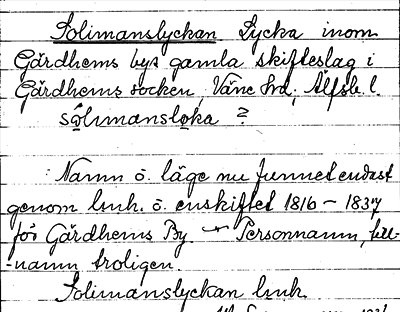 Solimanslyckan Lycka inom
Gärdhems bys gamla skifteslag i
Gärdhems socken, Väne hd, Älfsb. l.
sólimanslo̧ka ?
Namn o. läge nu funnet endast
genom lmh. o. enskiftet 1816 – 1837
för Gärdhems By. — Personnamn, till-
-namn troligen.
Solimanslyckan lmh.